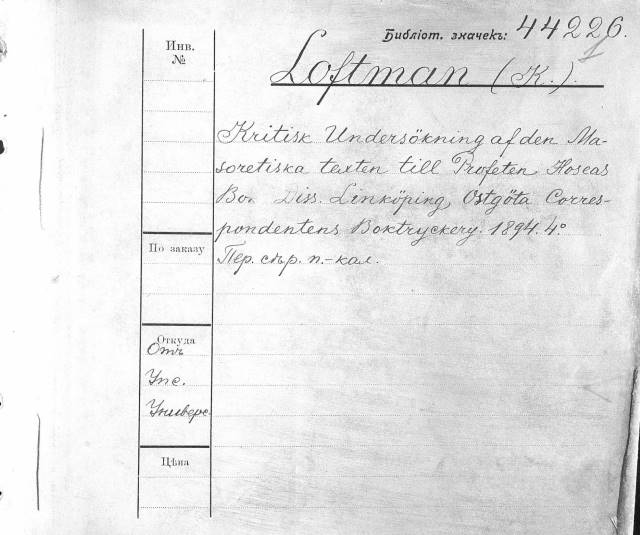 Инв.
№
Библіот. значекъ: 44226.
1
Loftman (K.).
Kritisk Undersökning af den Ma-
soretiska texten till Profeten Hoseas
Bok Diss. Linköping, Ostgöta Corres-
pondentens Boktryckery. 1894. 4°
По заказу
Пер. сѣр. п.-кал.
Откуда
Отъ
Упс.
Универс.
Цѣна